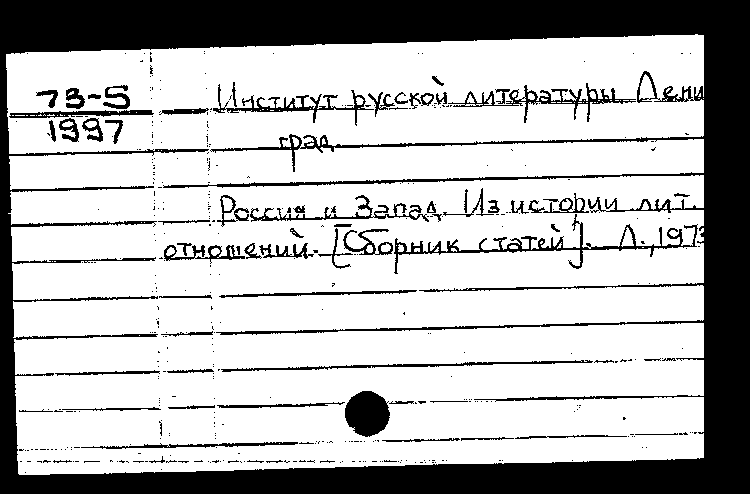 73-5
1997
Институт русской литературы Лени
град.
Россия и Запад. Из истории лит.
отношений. [Сборник статей]. Л., 1973